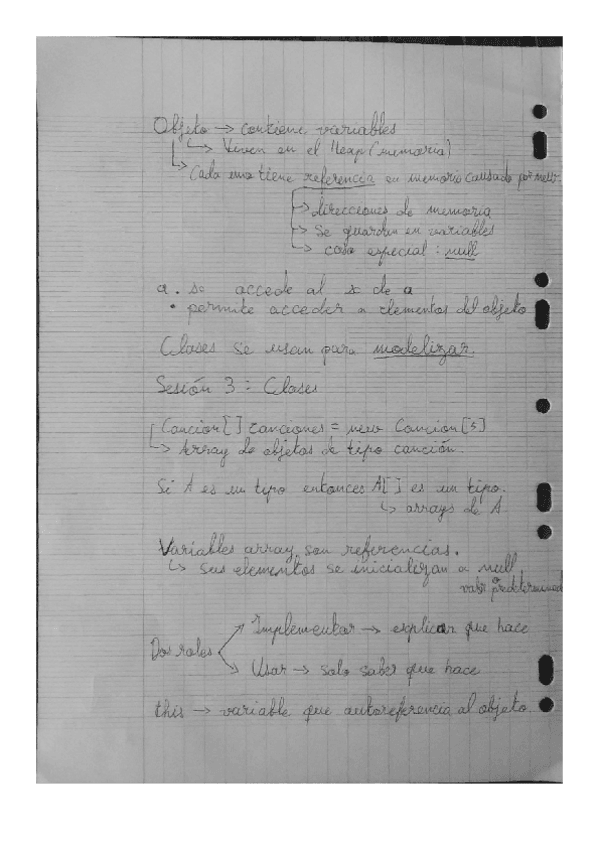 Objeto → contiene variables
↳ Viven en el Heap (memoria)
↳ Cada uno tiene referencia en memoria causado por new.
→ direcciones de memoria
→ Se guardan en variables
→ caso especial : null
a . se accede al x de a
• permite acceder a elementos del objeto
Clases se usan para modelizar
Sesión 3 : Clases
Cancion[] canciones = new Cancion[5]
↳ Array de objetos de tipo canción.
Si A es un tipo entonces A[] es un tipo.
↳ arrays de A
Variables array son referencias.
↳ Sus elementos se inicializan a null
valor predeterminad
Implementar → explicar que hace
Dos roles
Usar → solo saber que hace
this → variable que autoreferencia al objeto.